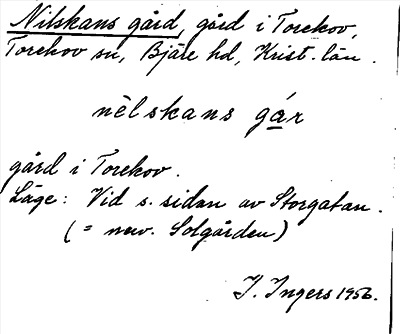 Nilskans gård, gård i Torekov,
Torekov sn, Bjäre hd, Krist. län.
nèlskans gár
gård i Torekov.
Läge: Vid s. sidan av Storgatan.
(= nuv. Solgården)
I. Ingers 1956.